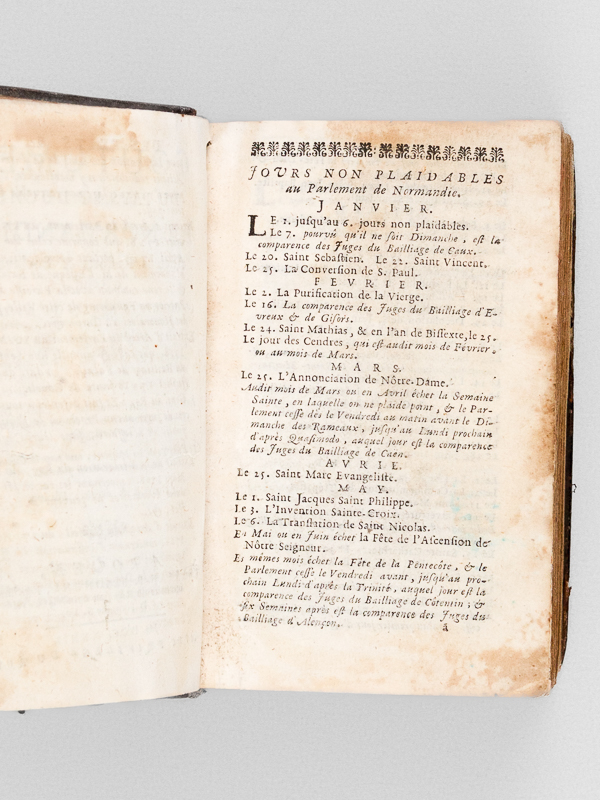 JOVRS NON PLAIDABLES
au Parlement de Normandie.
JANVIER.
LE 1. jusqu'au 6. jours non plaidables.
Le 7. pourvû qu'il ne soit Dimanche, est la
comparence des Juges du Bailliage de Caux.
Le 20. Saint Sebastien. Le 22. Saint Vincent.
Le 25. La Conversion de S. Paul.
FEVRIER.
Le 2. La Purification de la Vierge.
Le 16. La comparence des Juges du Bailliage d'E-
vreux & de Gisors.
Le 24. Saint Mathias, & en l'an de Bissexte, le 25.
Le jour des Cendres, qui est audit mois de Février,
ou au mois de Mars.
MARS.
Le 25. L'Annonciation de Nôtre-Dame.
Audit mois de Mars ou en Avril échet la Semaine
Sainte, en laquelle on ne plaide point, & le Par-
lement cesse dès le Vendredi au matin avant le Di-
manche des Rameaux, jusqu'au Lundi prochain
d'après Quasimodo, auquel jour est la comparence
des Juges du Bailliage de Caen.
AVRIL.
Le 25. Saint Marc Evangeliste.
MAY.
Le 1. Saint Jacques Saint Philippe.
Le 3. L'Invention Sainte-Croix.
Le 6. La Translation de Saint Nicolas.
En Mai ou en Juin échet la Fête de l'Ascension de
Nôtre Seigneur.
Es mêmes mois échet la Fête de la Pentecôte, & le
Parlement cesse le Vendredi avant, jusqu'au pro-
chain Lundi d'après la Trinité, auquel jour est la
comparence des Juges du Bailliage de Côtentin; &
six Semaines après est la comparence des Juges du
Bailliage d'Alençon.
ã